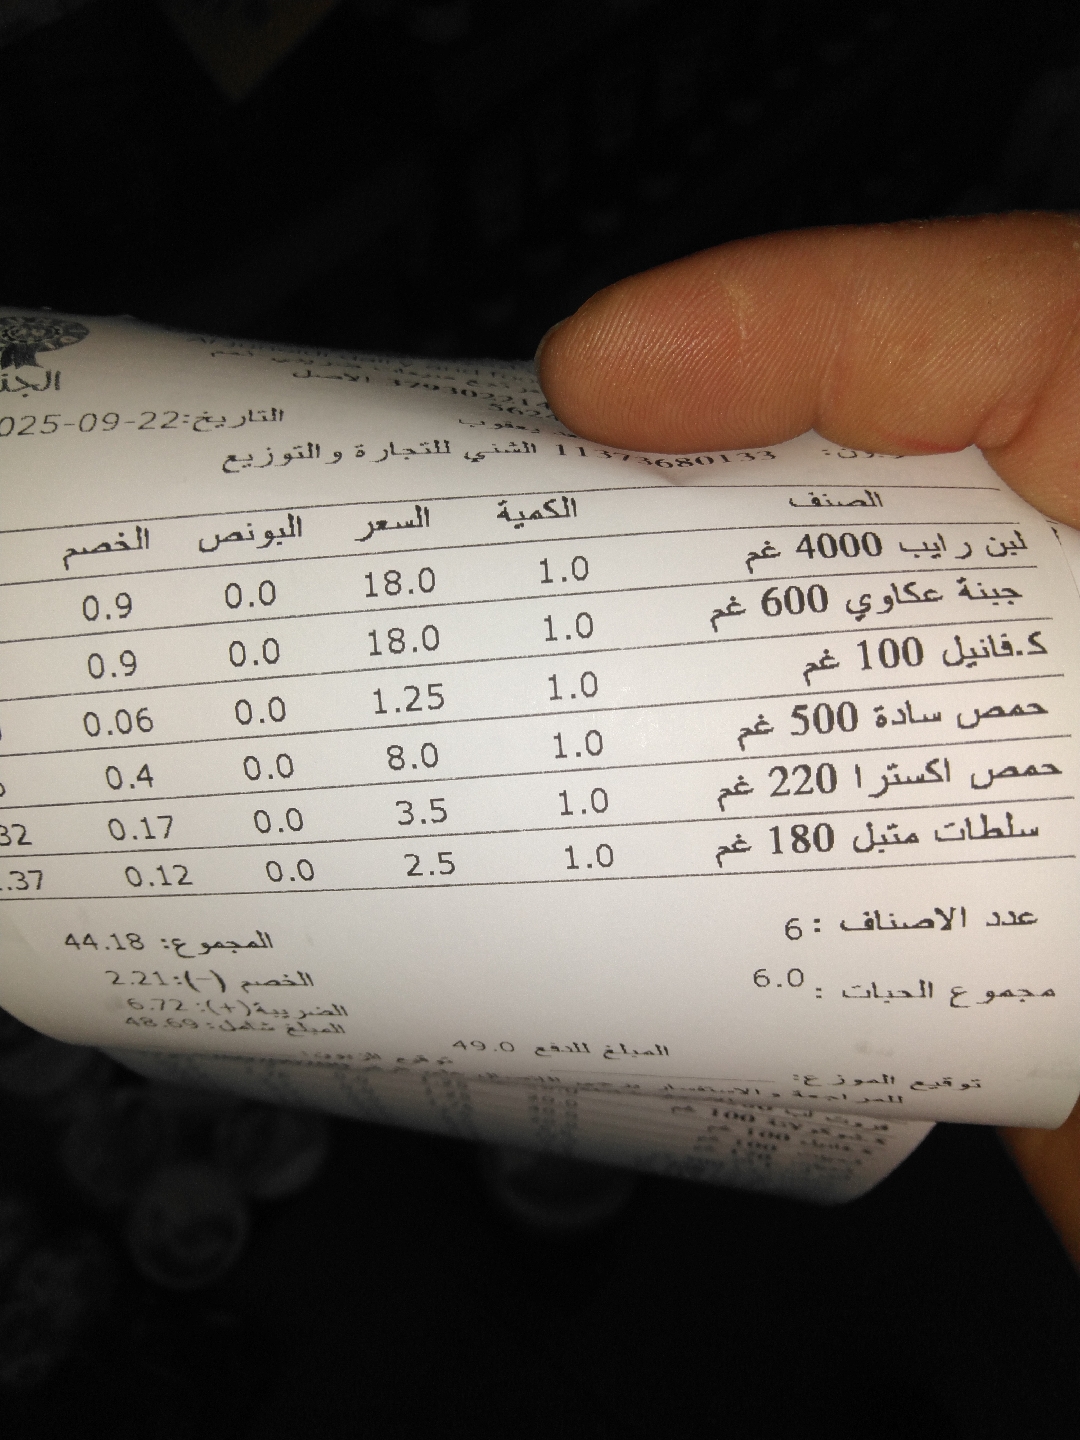 الجن
التاريخ:025-09-22
379302214 الاصل
5624
يعقوب
11373680133 الشني للتجارة والتوزيع
الصنف الكمية السعر البونص الخصم
لبن رايب 4000 غم 1.0 18.0 0.0 0.9
جبنة عكاوي 600 غم 1.0 18.0 0.0 0.9
ك.فانيل 100 غم 1.0 1.25 0.0 0.06
حمص سادة 500 غم 1.0 8.0 0.0 0.4
حمص اكسترا 220 غم 1.0 3.5 0.0 0.17 32
سلطات متبل 180 غم 1.0 2.5 0.0 0.12 .37
عدد الاصناف : 6
المجموع: 44.18
مجموع الحبات : 6.0
الخصم (-):2.21
الضريبة(+): 6.72
المبلغ شامل: 48.69
المبلغ للدفع 49.0
توقيع الموزع:
توقيع الزبون:
للمراجعة والاستفسار
100 غم
ك.فانيل 100 غم